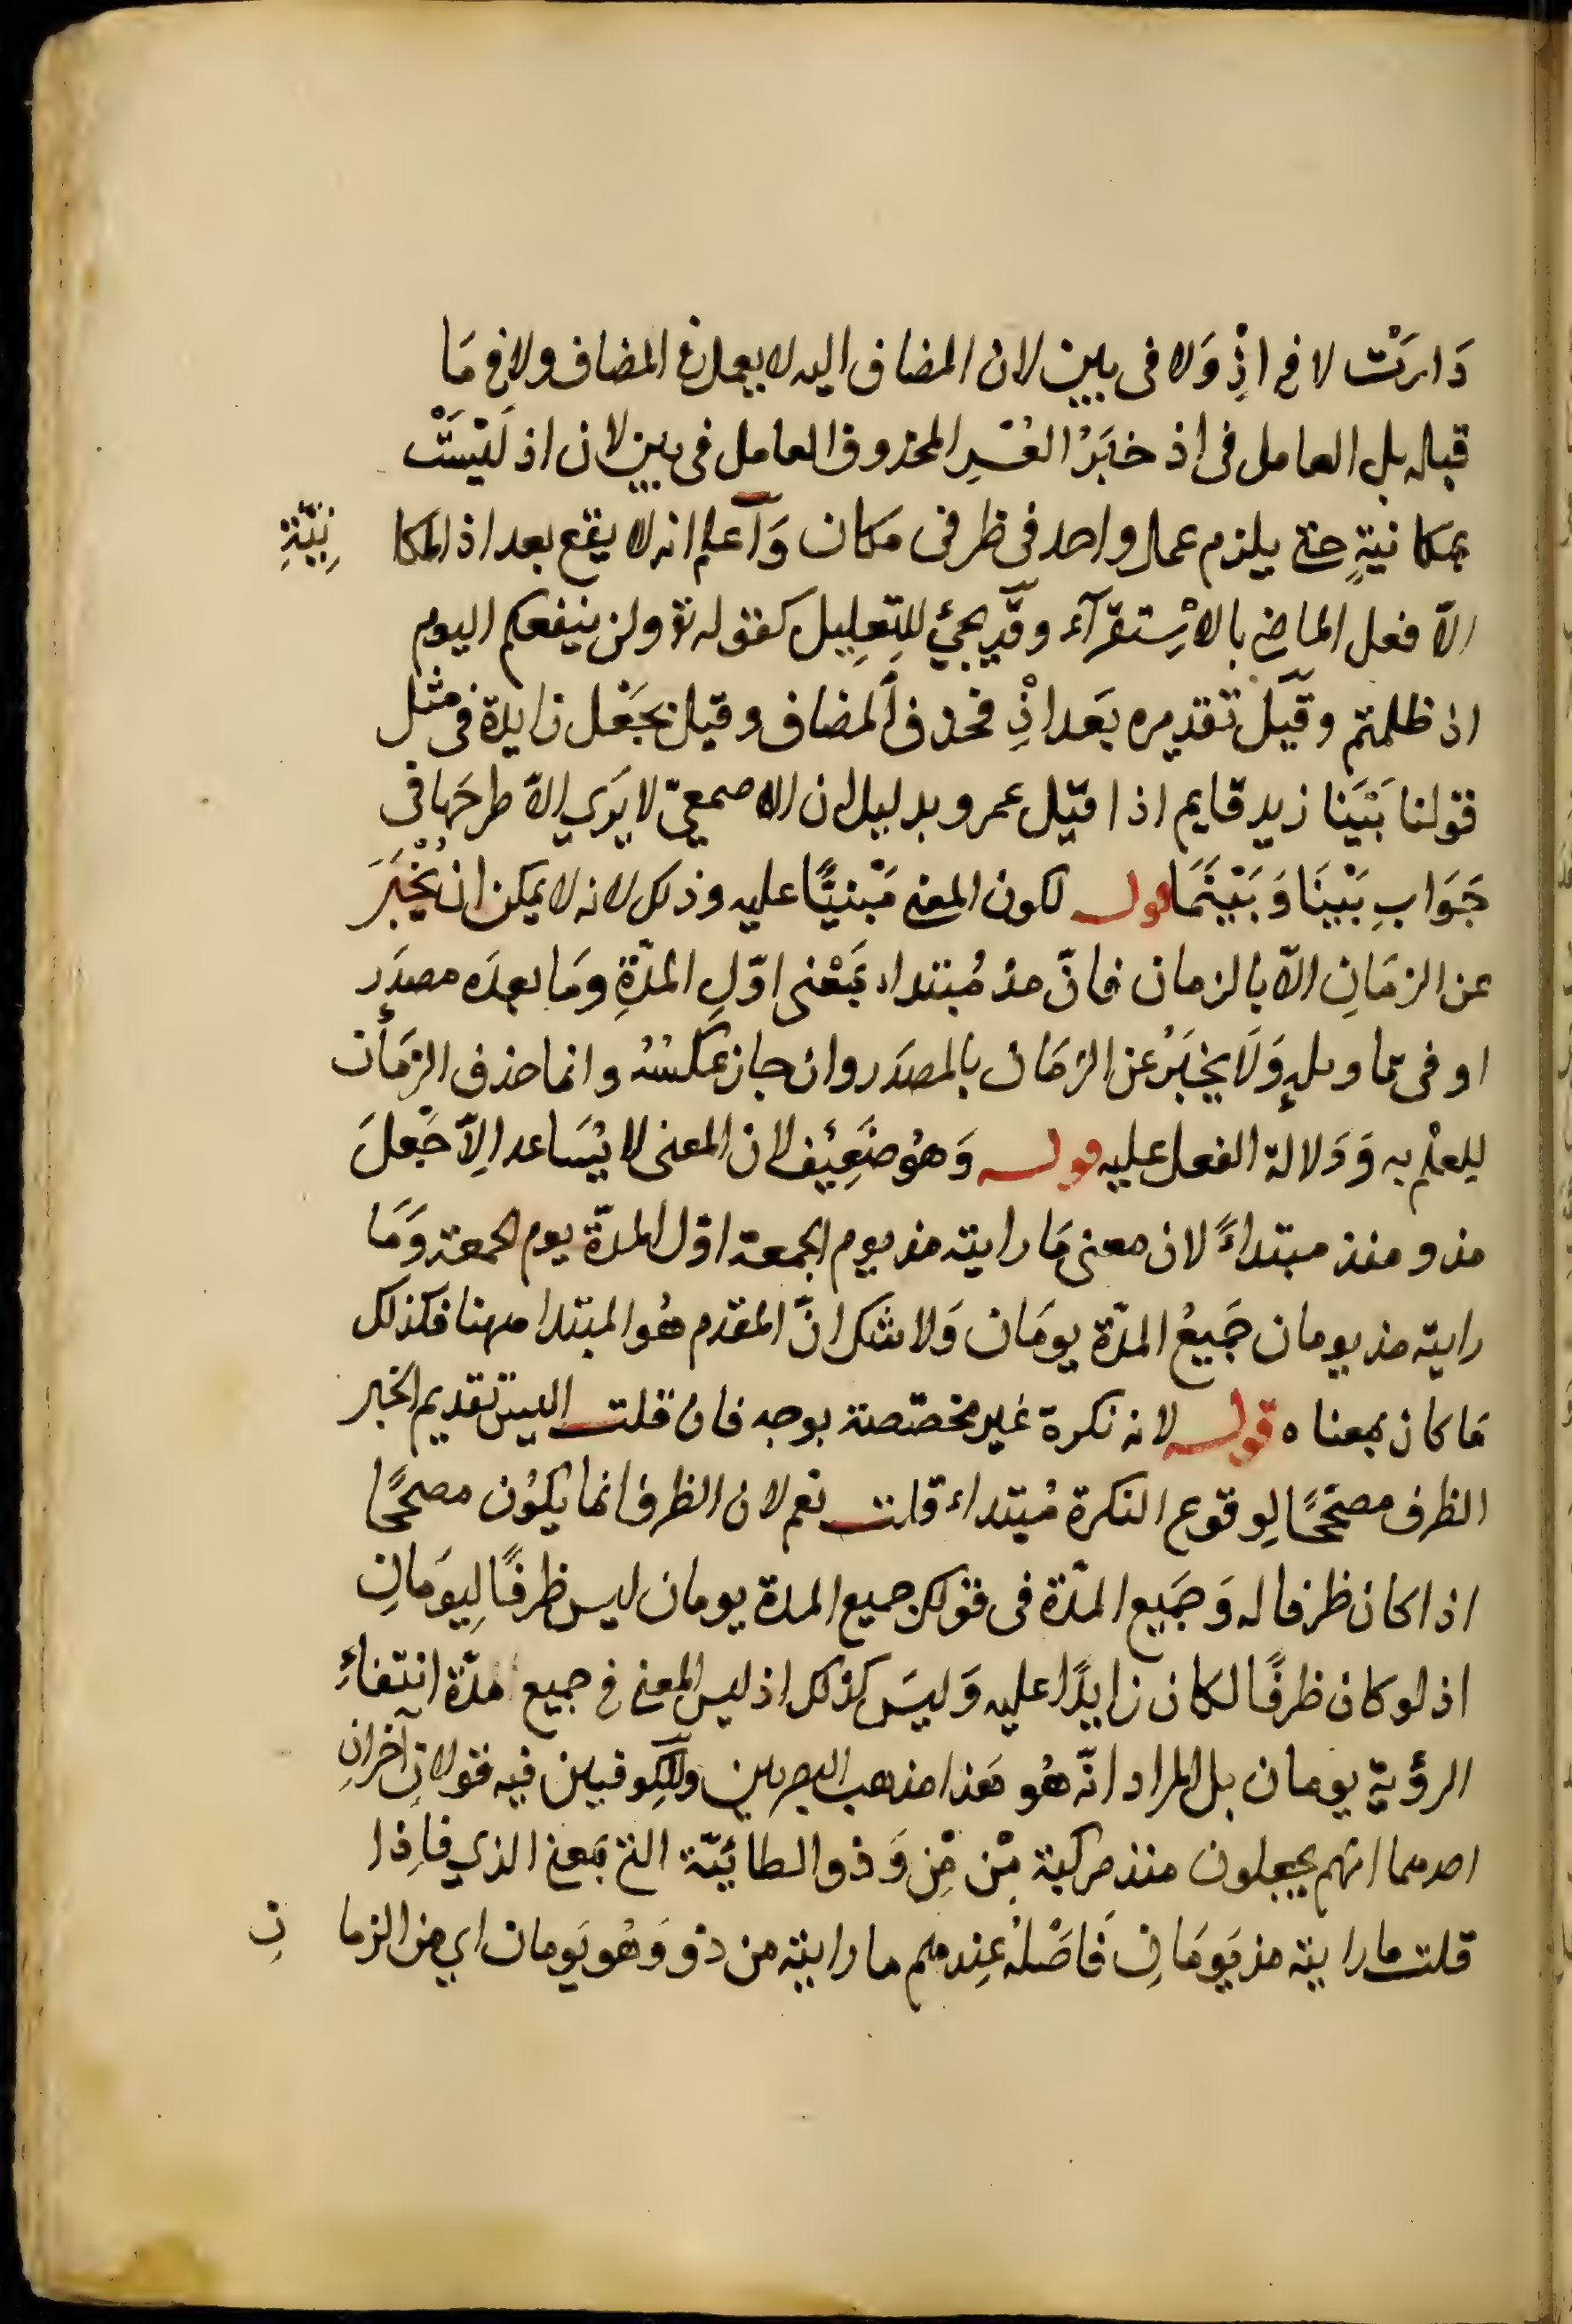 دَارَتْ لا في اذِ وَلا فى بين لان المضاف اليه لا يعمل في المضاف ولا في مَا
قبله بل العامل فى اذ خبَرُ العُسْرِ المحذوف العامل فى بين لان اذ لَيْسَتْ
بمكانيةٍ حتى يلزم عمل واحد فى ظرفى مكان وَاعلم انه لا يقع بعد اذ المكا نِيَّةِ
الّا فعل الماضي بالاسْتِقرآء وقد يجيُ للتِعِليل كقوله تع ولن ينفعكم اليوم
اذ ظلمتم وقيل تقديره بَعد اذْ فحذف المضاف وقيل بجَعْل زايدة فى مثل
قولنا بَيْنَا زيد قايم اذا قبَل عمرو بدليل ان الاصمعيّ لا يَرَي الّا طرحَهَا فى
جَوَابِ بَيْنَا وَبَيْنَمَا قوله لكون المعنى مَبْنيًّا عليه وذلك لانه لا يمكن ان يُخْبَرَ
عن الزمَانِ الّا بالزمان فانّ مذ مُبتداء بمَعْنى اوّلِ المُدّةِ وَمَا بعدَه مصدَر
او فى تاويلهِ وَلَا يخبَرُ عن الزمَان بالمصدَر وان جاز عكسُهُ وانما حذف الزمَان
للِعلْم به وَدَلالة الفعل عليه قوله وَهُو ضَعِيْف لان المعنى لا يُسَاعد اِلّا جَعلَ
مذ و منذ مبتداءً لان معنى مَا رايته مذ يوم الجمعة اوّل المدّة يوم الجمعة وَمَا
رايته مذ يومان جَمِيعُ المدّة يومَان وَلا شك انّ المقدم هُو المبتدا ههنا فكذلك
مَا كان بمعناه قوله لانه نكرة غير مخصّصة بوجه فان قلت اليس تقديم الخبر
الظرف مصحّحًا لِوقوع النكرة مُبتداء قلت نعم لان الظرف انما يكوُن مصححًا
اذا كان ظرفا له وَجَميع المدّة فى قولك جميع المدة يومان ليس ظرفًا لِيومَانِ
اذ لو كان ظرفًا لكان زايدًا عليه وَليسَ كذلك اذ ليس المعنى في جميع مدّة انتفاءِ
الرؤية يومان بل المراد انّه هُو هَذا مذهب البصريين وللِكوفيين فيه قولان آخرانِ
احدهما انهم يجعلون منذ مركبة مِنْ مِن وَذو الطائيّة التى بمعنى الذي فاِذا
قلت ما رايته مذ يَومَانِ فَاصْلهُ عِندهم ما رايته من ذو وَهُو يَومان اي من الزما نِ